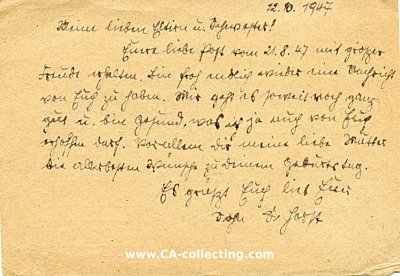 12.10.1947
Meine lieben Eltern u. Schwester!
Eure liebe Post vom 21.8.47 mit großer
Freude erhalten. Bin froh endlich wieder eine Nachricht
von Euch zu haben. Mir geht es soweit noch ganz
gut u. bin gesund, was ich ja auch von Euch
erhoffen darf. Vor allem dir meine liebe Mutter
die allerbesten Wünsche zu deinem Geburtstag.
Es grüßt Euch Euer
Sohn Horst
www.CA-collecting.com